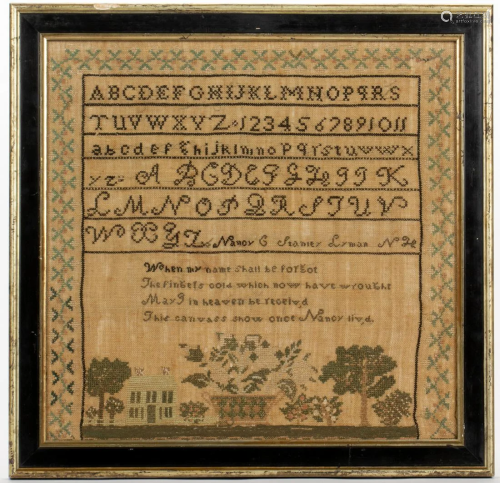 ABCDEFGHIJKLMNOPQRS
TUVWXYZ·1234567891011
abcdefghijklmnopqrstuvwx
yz A B C D E F G H I J K
L M N O P Q R S T U V
W X Y Z Nancy C Lyman
When my name shall be forgot
The fingers cold which now have wrought
May I in heaven be receivd
This canvass show once Nancy livd.